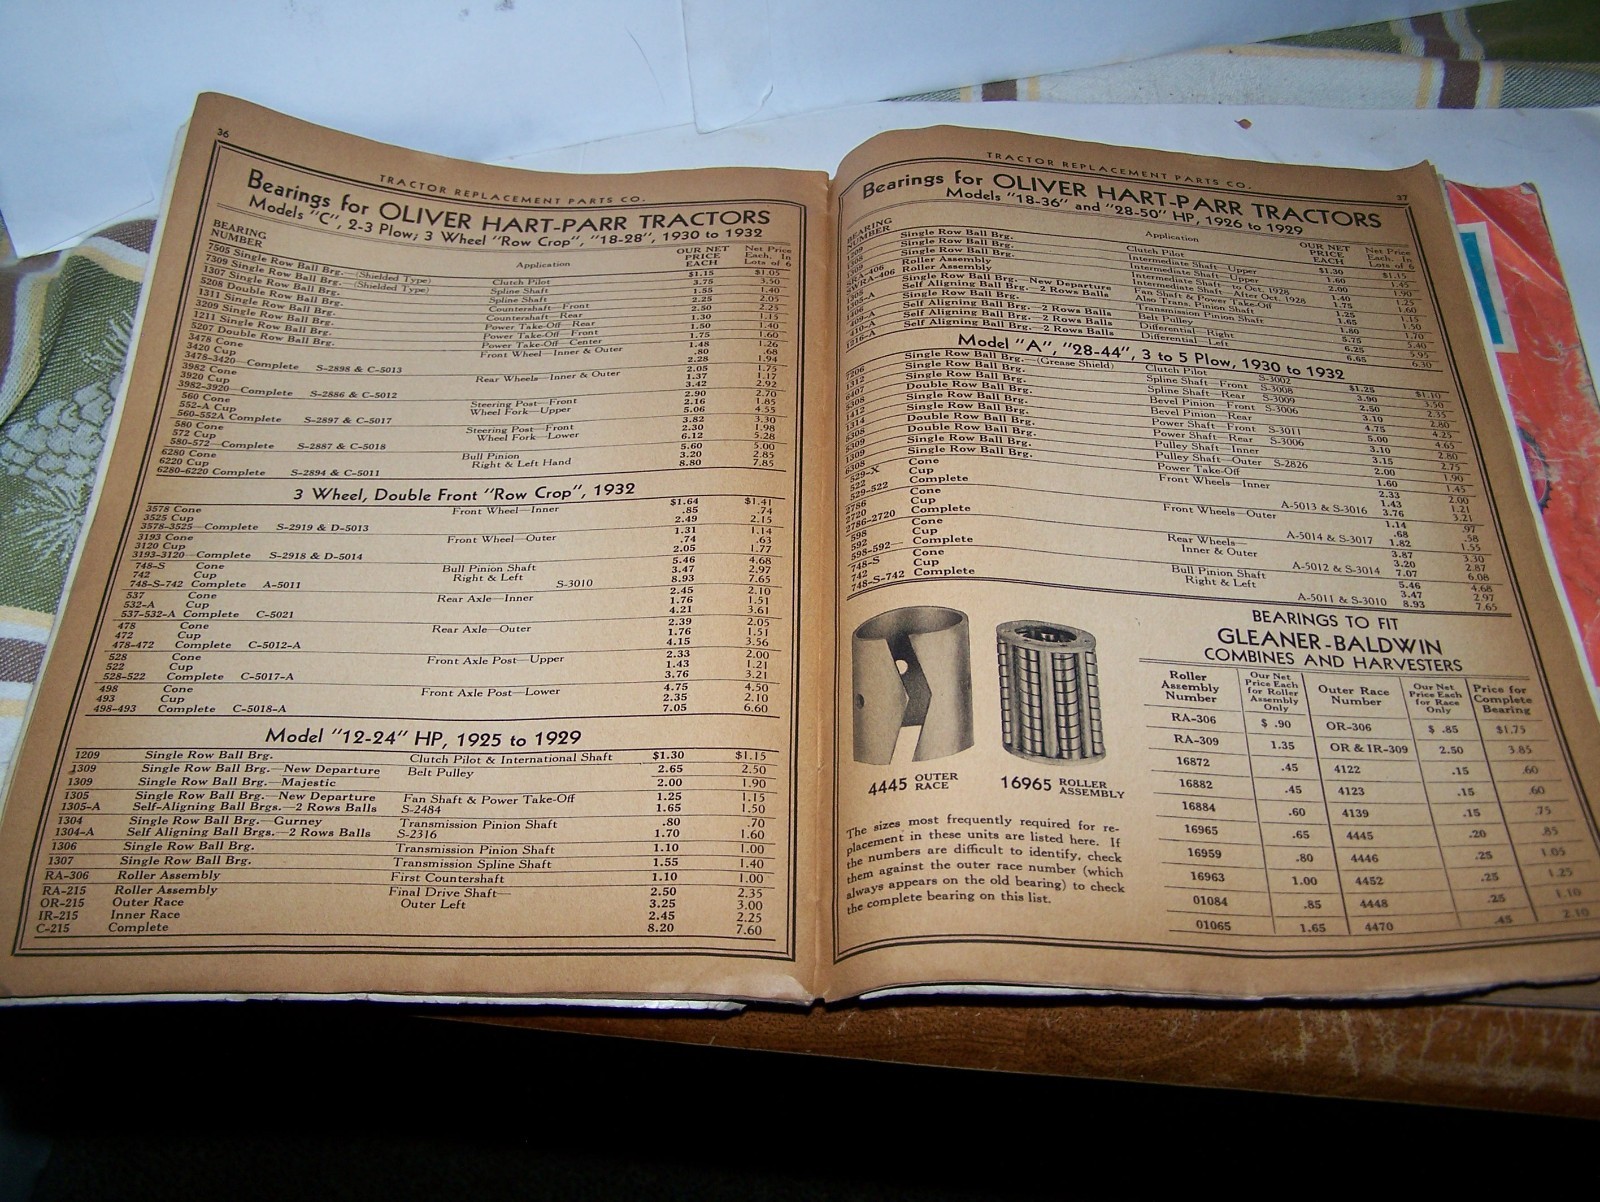 36
TRACTOR REPLACEMENT PARTS CO.
Bearings for OLIVER HART-PARR TRACTORS
Models "C", 2-3 Plow; 3 Wheel "Row Crop", "18-28", 1930 to 1932
BEARING NUMBER Application OUR NET PRICE EACH Net Price Each. In Lots of 6
7505 Single Row Ball Brg.—(Shielded Type) Clutch Pilot $1.15 $1.05
7309 Single Row Ball Brg.—(Shielded Type) Spline Shaft 3.75 3.50
1307 Single Row Ball Brg. Spline Shaft 1.55 1.40
5208 Double Row Ball Brg. Countershaft—Front 2.25 2.05
1311 Single Row Ball Brg. Countershaft—Rear 2.50 2.25
3209 Single Row Ball Brg. Power Take-Off—Rear 1.30 1.15
1211 Single Row Ball Brg. Power Take-Off—Front 1.50 1.40
5207 Double Row Ball Brg. Power Take-Off—Center 1.75 1.60
3478 Cone Front Wheel—Inner & Outer 1.48 1.26
3420 Cup .80 .68
3478-3420—Complete S-2898 & C-5013 2.28 1.94
3982 Cone Rear Wheels—Inner & Outer 2.05 1.75
3920 Cup 1.37 1.17
3982-3920—Complete S-2886 & C-5012 3.42 2.92
560 Cone Steering Post—Front 2.90 2.70
552-A Cup Wheel Fork—Upper 2.16 1.85
560-552A Complete S-2897 & C-5017 5.06 4.55
580 Cone Steering Post—Front 3.82 3.30
572 Cup Wheel Fork—Lower 2.30 1.98
580-572—Complete S-2887 & C-5018 6.12 5.28
6280 Cone Bull Pinion 5.60 5.00
6220 Cup Right & Left Hand 3.20 2.85
6280-6220 Complete S-2894 & C-5011 8.80 7.85
3 Wheel, Double Front "Row Crop", 1932
3578 Cone Front Wheel—Inner $1.64 $1.41
3525 Cup .85 .74
3578-3525—Complete S-2919 & D-5013 2.49 2.15
3193 Cone Front Wheel—Outer 1.31 1.14
3120 Cup .74 .63
3193-3120—Complete S-2918 & D-5014 2.05 1.77
748-S Cone Bull Pinion Shaft 5.46 4.68
742 Cup Right & Left 3.47 2.97
748-S-742 Complete A-5011 S-3010 8.93 7.65
537 Cone Rear Axle—Inner 2.45 2.10
532-A Cup 1.76 1.51
537-532-A Complete C-5021 4.21 3.61
478 Cone Rear Axle—Outer 2.39 2.05
472 Cup 1.76 1.51
478-472 Complete C-5012-A 4.15 3.56
528 Cone Front Axle Post—Upper 2.33 2.00
522 Cup 1.43 1.21
528-522 Complete C-5017-A 3.76 3.21
498 Cone Front Axle Post—Lower 4.75 4.50
493 Cup 2.35 2.10
498-493 Complete C-5018-A 7.05 6.60
Model "12-24" HP, 1925 to 1929
1209 Single Row Ball Brg. Clutch Pilot & International Shaft $1.30 $1.15
1309 Single Row Ball Brg.—New Departure Belt Pulley 2.65 2.50
1309 Single Row Ball Brg.—Majestic 2.00 1.90
1305 Single Row Ball Brg.—New Departure Fan Shaft & Power Take-Off 1.25 1.15
1305-A Self-Aligning Ball Brgs.—2 Rows Balls S-2484 1.65 1.50
1304 Single Row Ball Brg.—Gurney Transmission Pinion Shaft .80 .70
1304-A Self Aligning Ball Brgs.—2 Rows Balls S-2316 1.70 1.60
1306 Single Row Ball Brg. Transmission Pinion Shaft 1.10 1.00
1307 Single Row Ball Brg. Transmission Spline Shaft 1.55 1.40
RA-306 Roller Assembly First Countershaft 1.10 1.00
RA-215 Roller Assembly Final Drive Shaft— 2.50 2.35
OR-215 Outer Race Outer Left 3.25 3.00
IR-215 Inner Race 2.45 2.25
C-215 Complete 8.20 7.60
TRACTOR REPLACEMENT PARTS CO.
37
Bearings for OLIVER HART-PARR TRACTORS
Models "18-36" and "28-50" HP, 1926 to 1929
BEARING NUMBER Application OUR NET PRICE EACH Net Price Each. In Lots of 6
Single Row Ball Brg. Clutch Pilot $1.30 $1.15
Single Row Ball Brg. Intermediate Shaft—Upper 1.60 1.45
Single Row Ball Brg. Intermediate Shaft—Upper 2.00 1.90
Roller Assembly Intermediate Shaft—to Oct. 1928 1.40 1.25
WRA-406 Roller Assembly Intermediate Shaft—After Oct. 1928 1.75 1.60
Single Row Ball Brg.—New Departure Fan Shaft & Power Take-Off 1.25 1.15
Self Aligning Ball Brg.—2 Rows Balls Also Trans. Pinion Shaft 1.65 1.50
Single Row Ball Brg. Transmission Pinion Shaft 1.80 1.70
Self Aligning Ball Brg.—2 Rows Balls Belt Pulley 5.75 5.40
Self Aligning Ball Brg.—2 Rows Balls Differential—Right 6.25 5.95
Self Aligning Ball Brg.—2 Rows Balls Differential—Left 6.65 6.30
Model "A", "28-44", 3 to 5 Plow, 1930 to 1932
Single Row Ball Brg.—(Grease Shield) Clutch Pilot S-3002 $1.25 $1.10
Single Row Ball Brg. Spline Shaft—Front S-3008 3.90 3.50
Double Row Ball Brg. Spline Shaft—Rear S-3009 2.50 2.35
Single Row Ball Brg. Bevel Pinion—Front S-3006 3.10 2.80
Single Row Ball Brg. Bevel Pinion—Rear 4.75 4.25
Double Row Ball Brg. Power Shaft—Front S-3011 5.00 4.65
Single Row Ball Brg. Power Shaft—Rear S-3006 3.10 2.80
Double Row Ball Brg. Pulley Shaft—Inner 3.15 2.75
Single Row Ball Brg. Pulley Shaft—Outer S-2826 2.00 1.90
Single Row Ball Brg. Power Take-Off 1.60 1.45
529-X Cone Front Wheels—Inner 2.33 2.00
522 Cup 1.43 1.21
529-522 Complete A-5013 & S-3016 3.76 3.21
2786 Cone Front Wheels—Outer 1.14 .97
2720 Cup .68 .58
2786-2720 Complete A-5014 & S-3017 1.82 1.55
598 Cone Rear Wheels— 3.87 3.30
592 Cup Inner & Outer 3.20 2.87
598-592— Complete A-5012 & S-3014 7.07 6.08
748-S Cone Bull Pinion Shaft 5.46 4.68
742 Cup Right & Left 3.47 2.97
748-S-742 Complete A-5011 & S-3010 8.93 7.65
4445 OUTER RACE
16965 ROLLER ASSEMBLY
The sizes most frequently required for re-
placement in these units are listed here. If
the numbers are difficult to identify, check
them against the outer race number (which
always appears on the old bearing) to check
the complete bearing on this list.
BEARINGS TO FIT
GLEANER-BALDWIN
COMBINES AND HARVESTERS
Roller Assembly Number Our Net Price Each for Roller Assembly Only Outer Race Number Our Net Price Each for Race Only Price for Complete Bearing
RA-306 $ .90 OR-306 $ .85 $1.75
RA-309 1.35 OR & IR-309 2.50 3.85
16872 .45 4122 .15 .60
16882 .45 4123 .15 .60
16884 .60 4139 .15 .75
16965 .65 4445 .20 .85
16959 .80 4446 .25 1.05
16963 1.00 4452 .25 1.25
01084 .85 4448 .25 1.10
01065 1.65 4470 .45 2.10